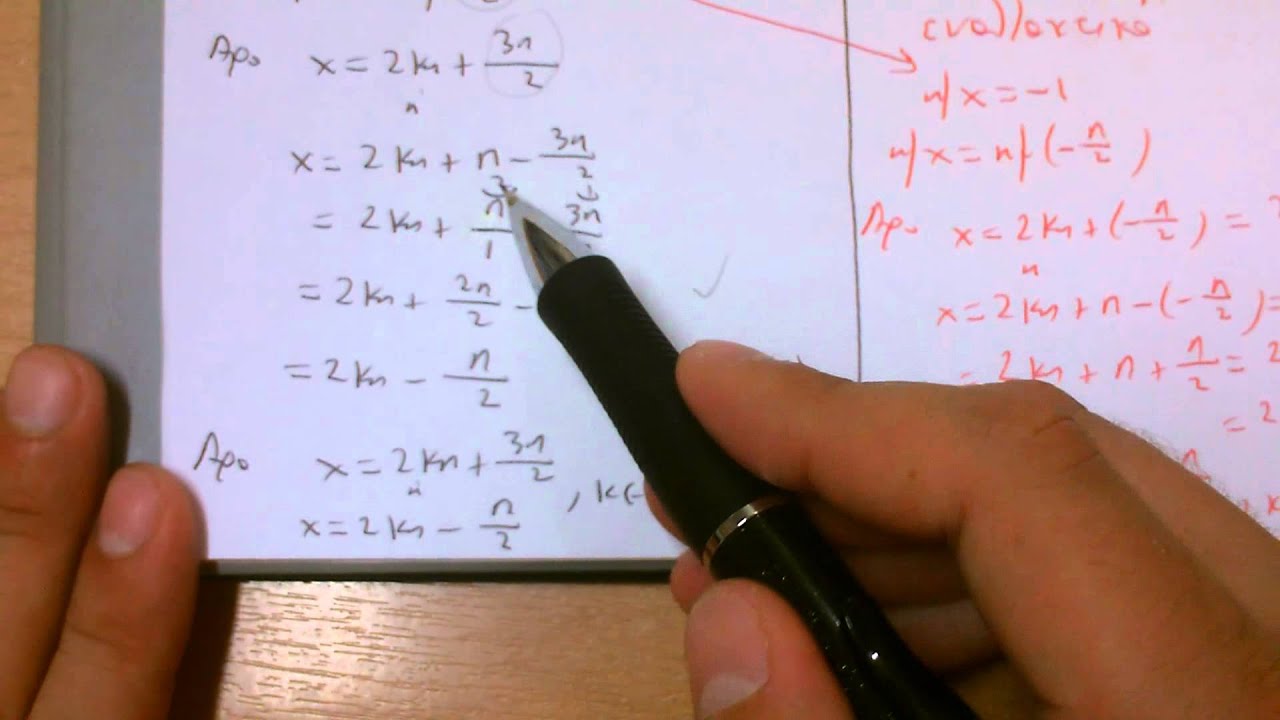 Άρα x = 2κπ + 3π/2
ή
x = 2κπ + π − 3π/2
= 2κπ + π/1 3π
= 2κπ + 2π/2 −
= 2κπ − π/2
Άρα x = 2κπ + 3π/2
ή
x = 2κπ − π/2 , κ ∈
εναλλακτικά
ημx = −1
ημx = ημ(−π/2)
Άρα x = 2κπ + (−π/2) =
ή
x = 2κπ + π − (−π/2) =
= 2κπ + π + π/2 =
= 2